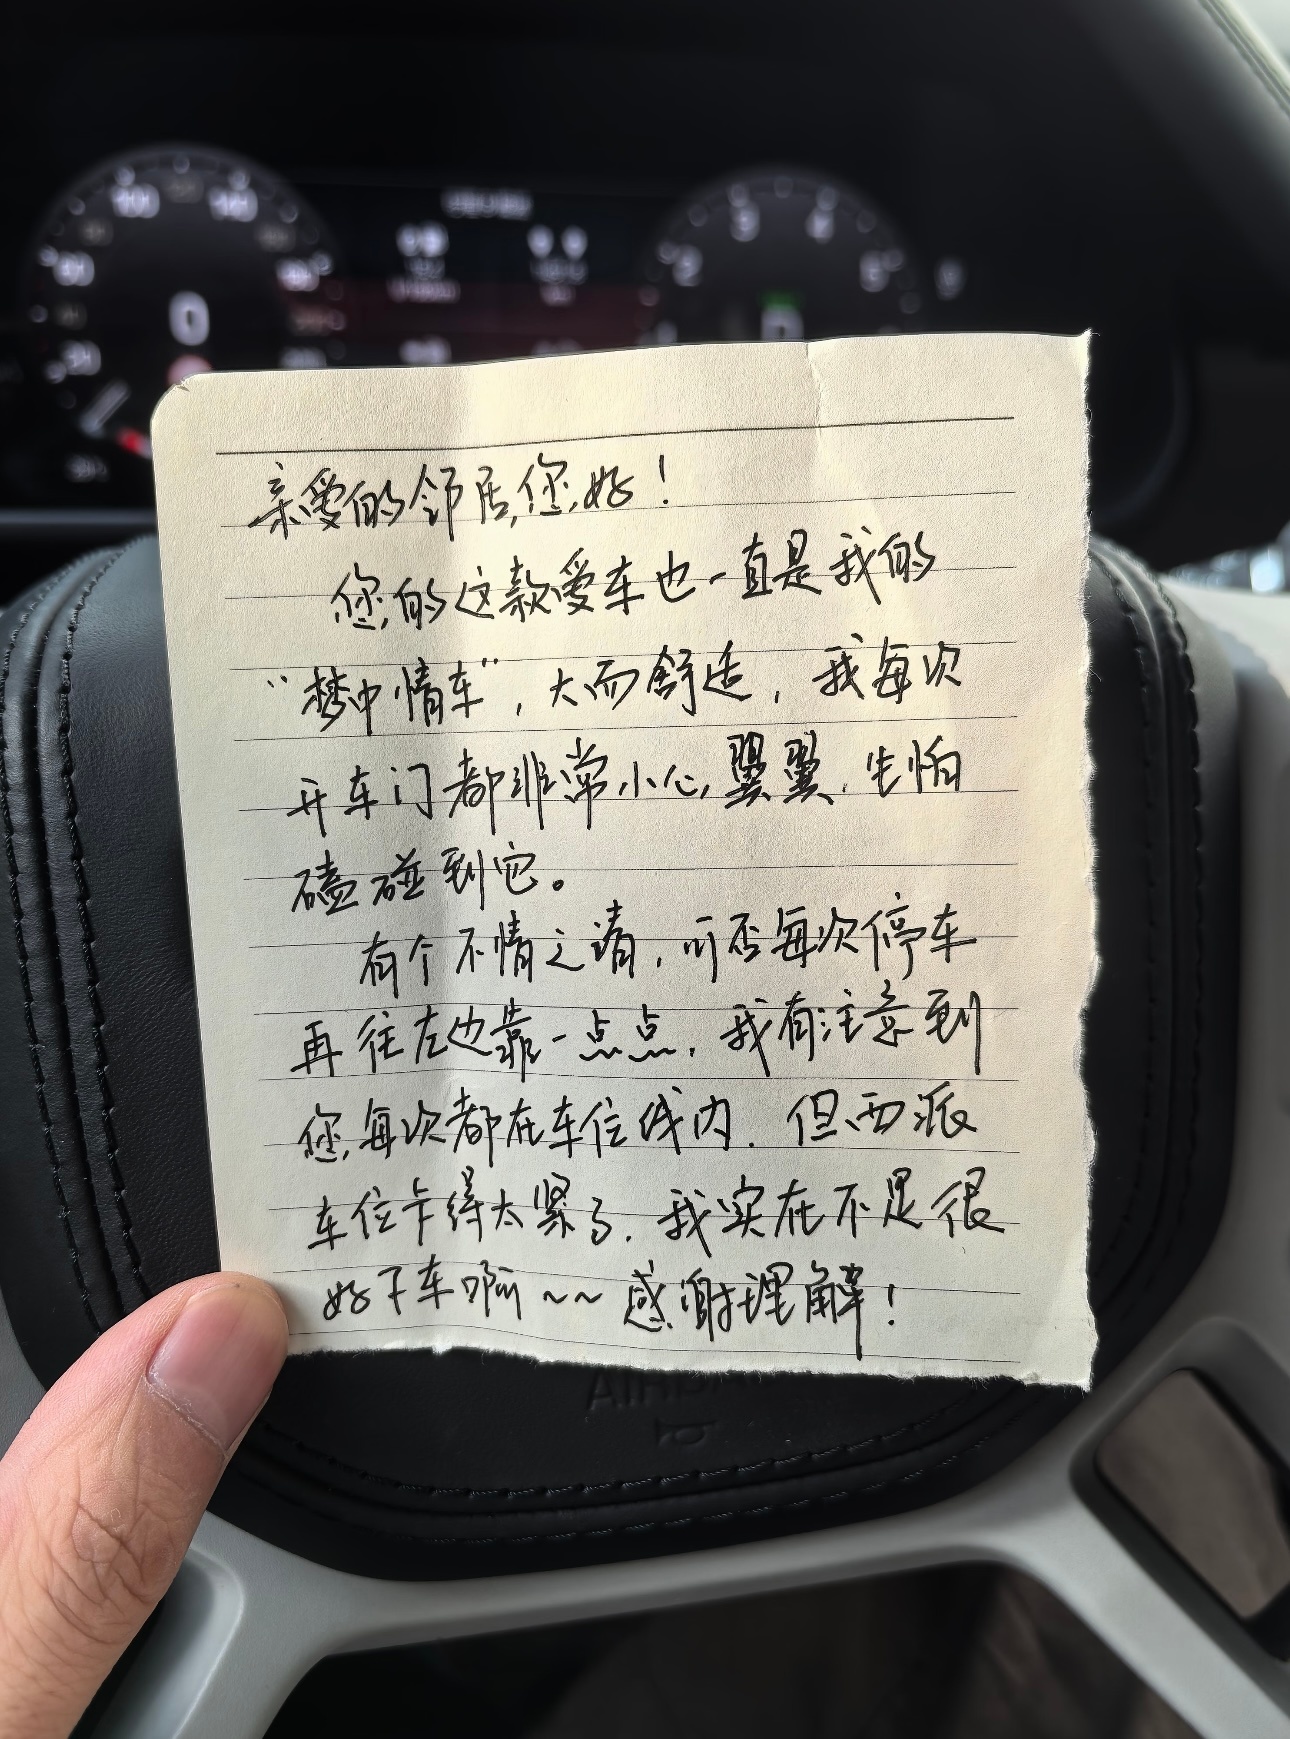 亲爱的邻居,您好!
您的这款爱车也一直是我的
“梦中情车”,大而舒适,我每次
开车门都非常小心翼翼,生怕
磕碰到它。
有个不情之请,可否每次停车
再往左边靠一点点,我有注意到
您每次都在车位线内,但西派
车位卡得太紧了,我实在不是很
好下车啊~~感谢理解!
100
140
60
0
3
4
2
5